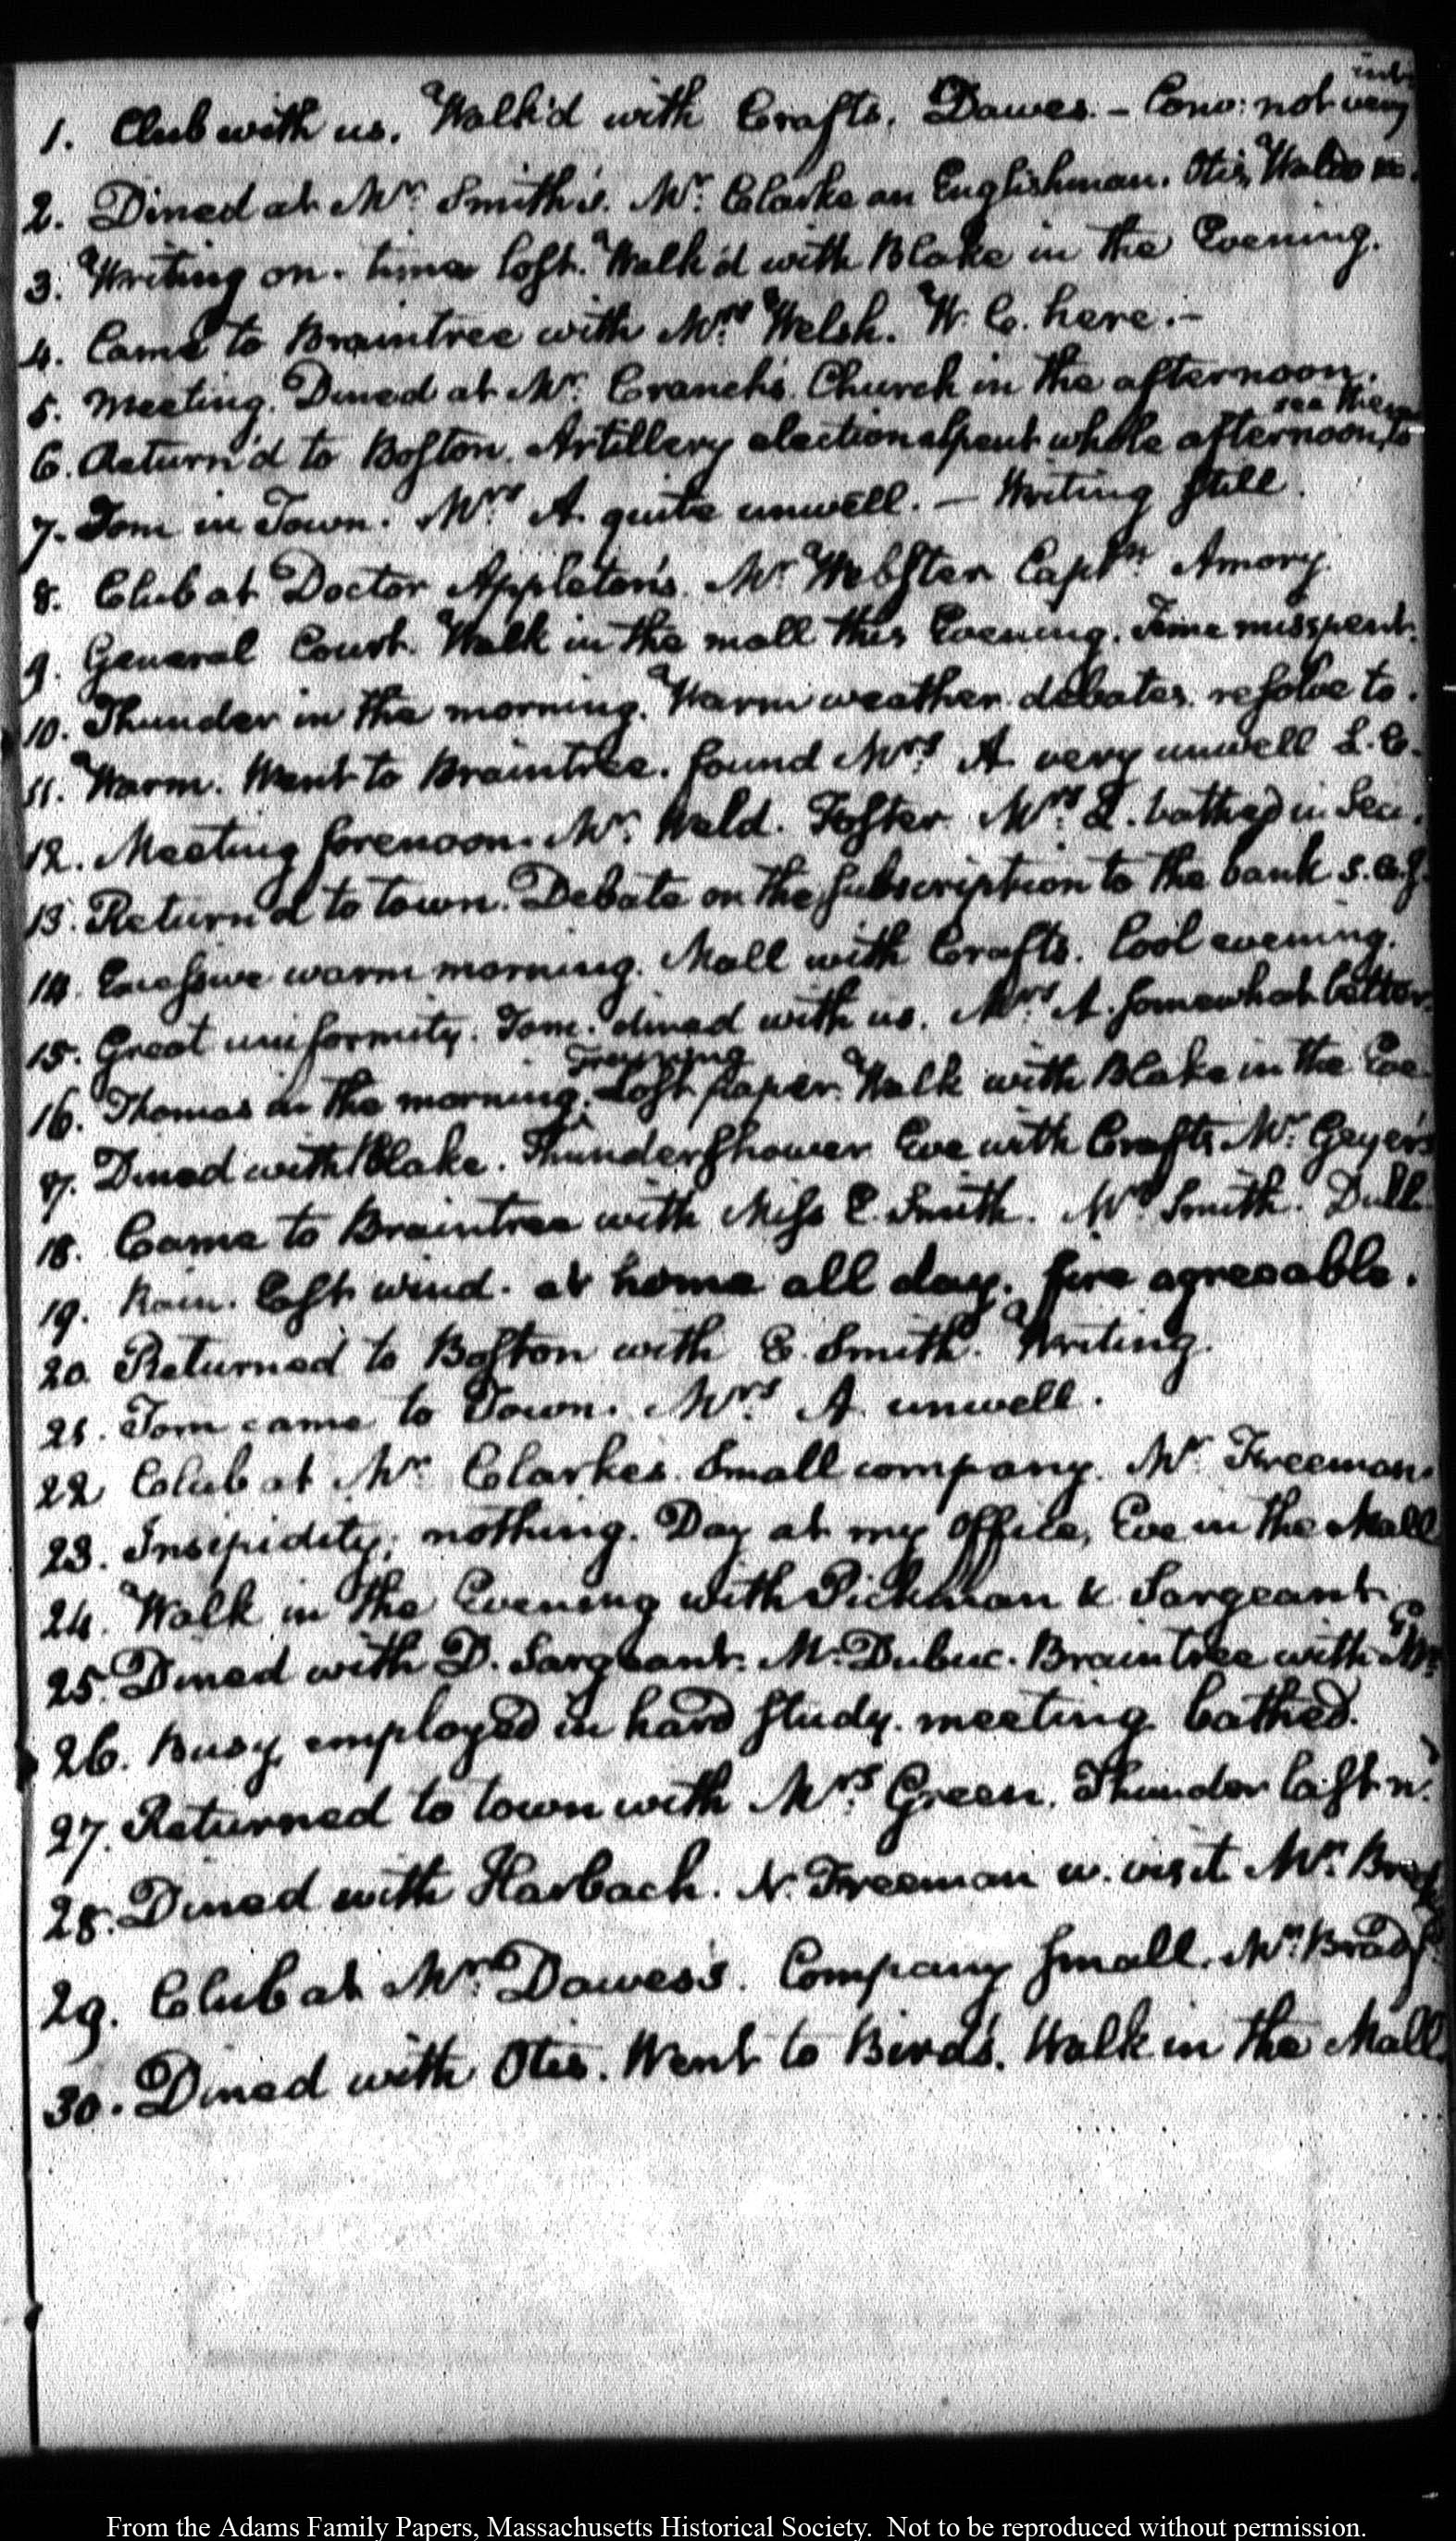 1. Club with us. Walk'd with Crafts. Dawes. – Conv: not very int:
2. Dined at Mr. Smith's. Mr. Clarke an Englishman. Otis, Waldo &c.
3. Writing on. time lost. Walk'd with Blake in the Evening.
4. Came to Braintree with Mrs. Welsh. W. C. here. –
5. Meeting. Dined at Mr. Cranch's. Church in the afternoon.
6. Return'd to Boston. Artillery election spent whole afternoon, to see them
7. Tom in Town. Mrs. A. quite unwell. – Writing still.
8. Club at Doctor Appleton's. Mr. Webster Captn. Amory.
9. General Court. Walk in the mall this Evening. Time misspent.
10. Thunder in the morning. Warm weather. debates. resolve to.
11. Warm. Went to Braintree. found Mrs. A very unwell L. C.
12. Meeting forenoon. Mr. Weld. Foster. Mrs. bathed in Sea.
13. Return'd to town. Debate on the subscription to the bank
14. Excessive warm morning. Mall with Crafts. Cool evening.
15. Great uniformity. Tom. dined with us. Mrs. A. somewhat better.
16. Thomas in the morning. Training Lost paper. Walk with Blake in the Eve
17. Dined with Blake. Thunder shower Eve with Crafts Mr. Geyer's
18. Came to Braintree with Miss E. Smith. Smith. Dull
19. Rain. East wind. at home all day. fire agreeable.
20. Returned to Boston with E. Smith. Writing.
21. Tom came to Town. Mrs A. unwell.
22 Club at Mr. Clarkes. Small company. Mr. Freeman.
23. Insipidity, nothing. Day at my Office, Eve in the Mall
24. Walk in the Evening with Pickman & Sargeant.
25. Dined with D. Sargeant. Mr. Dubuc. Braintree with
26. Busy employed in hard study. meeting. bathed.
27. Returned to town with Mrs. Green. Thunder last n.
28. Dined with Harbach. N. Freeman w. visit Mr.
29. Club at Mr. Dawes's. Company small. Mr. Bradf
30. Dined with Otis. Went to Bird's. Walk in the Mall.
From the Adams Family Papers, Massachusetts Historical Society. Not to be reproduced without permission.